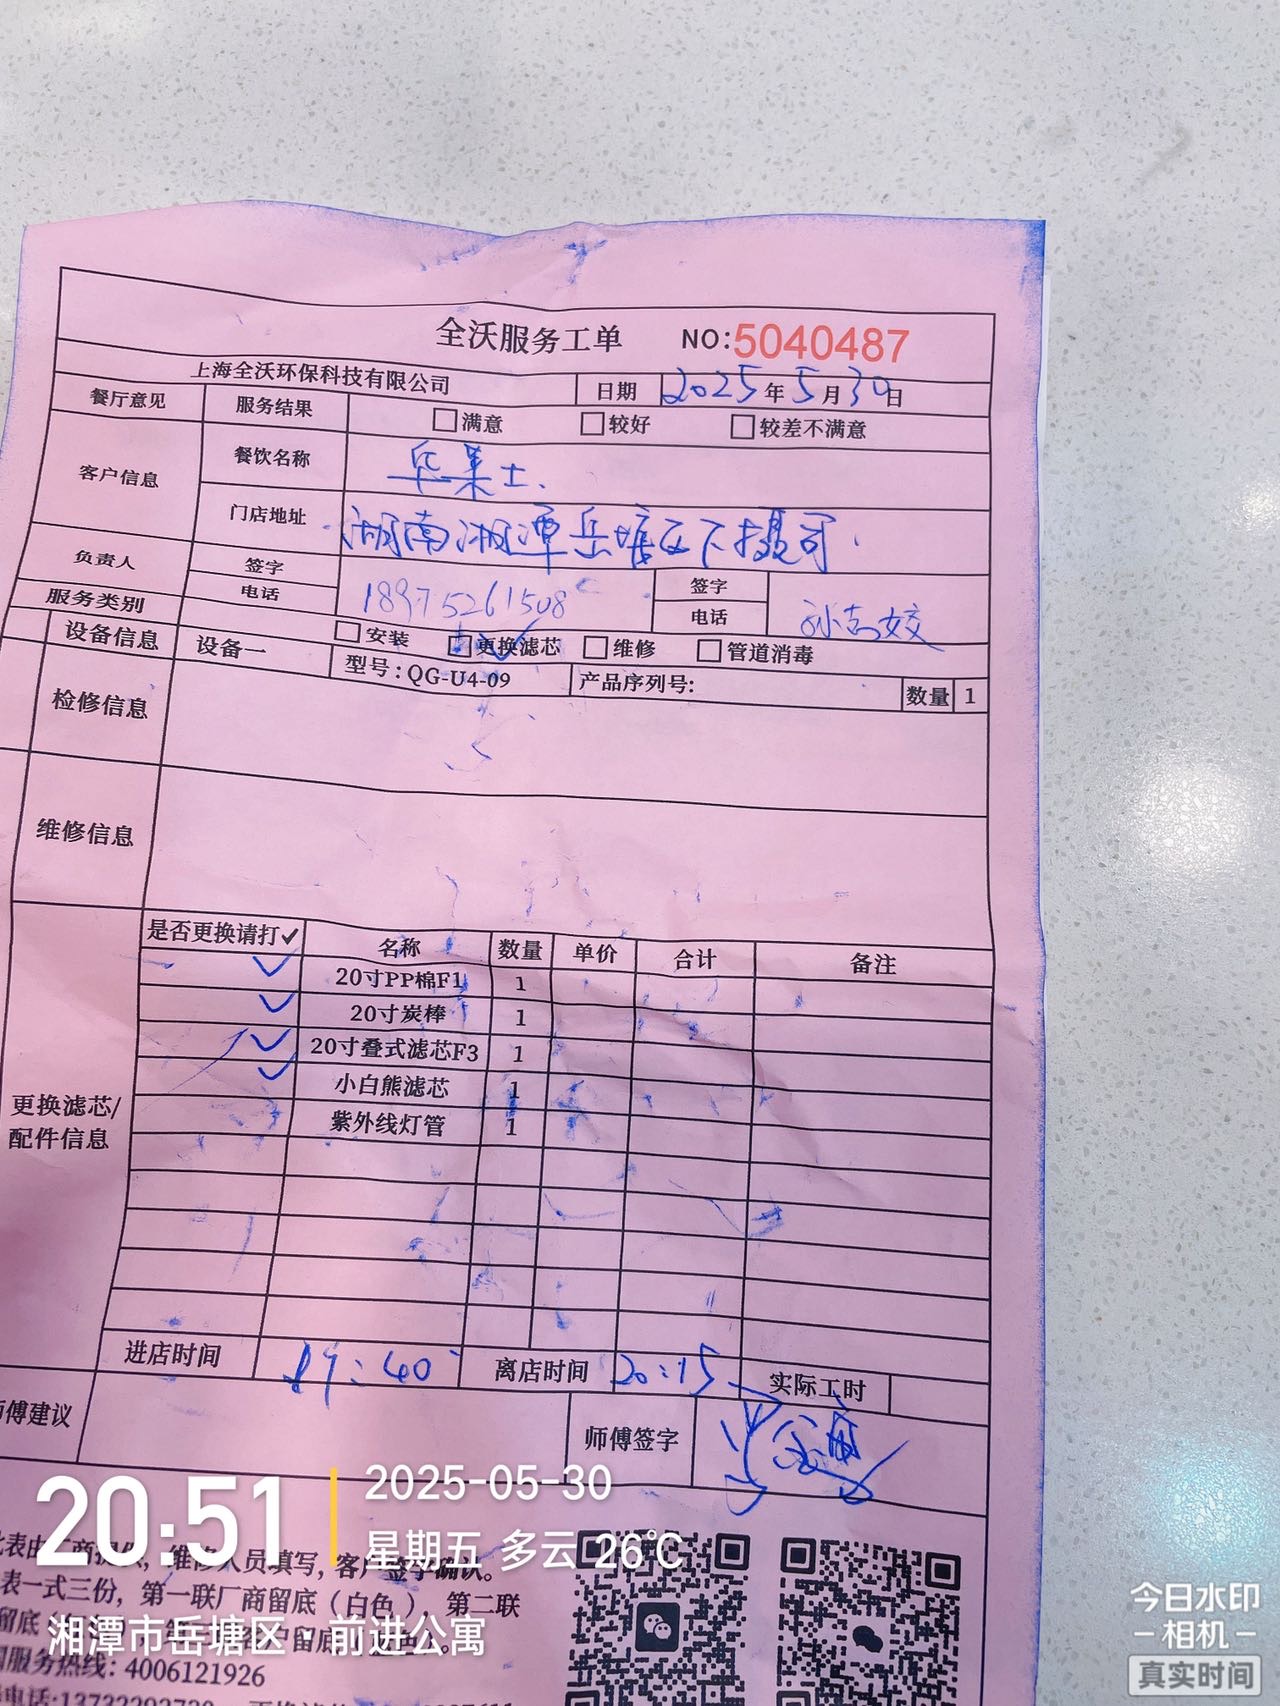 全沃服务工单 NO:5040487
上海全沃环保科技有限公司 日期 2025年5月30日
餐厅意见 服务结果 满意 较好 较差不满意
客户信息 餐饮名称 华莱士.
门店地址 湖南湘潭岳塘区下摄司.
负责人 签字 签字
电话 18975261508 电话
服务类别 安装 更换滤芯 维修 管道消毒
设备信息 设备一 型号:QG-U4-09 产品序列号: 数量 1
检修信息
维修信息
更换滤芯/配件信息
是否更换请打✓ 名称 数量 单价 合计 备注
✓ 20寸PP棉F1 1
✓ 20寸炭棒 1
✓ 20寸叠式滤芯F3 1
✓ 小白熊滤芯 1
紫外线灯管 1
进店时间 19:40 离店时间 20:15 实际工时
师傅建议 师傅签字
20:51
2025-05-30
星期五 多云 26℃
湘潭市岳塘区·前进公寓
维修人员填写,客户签字确认。
表一式三份,第一联厂商留底(白色),第二联
服务热线:4006121926
今日水印
相机
真实时间